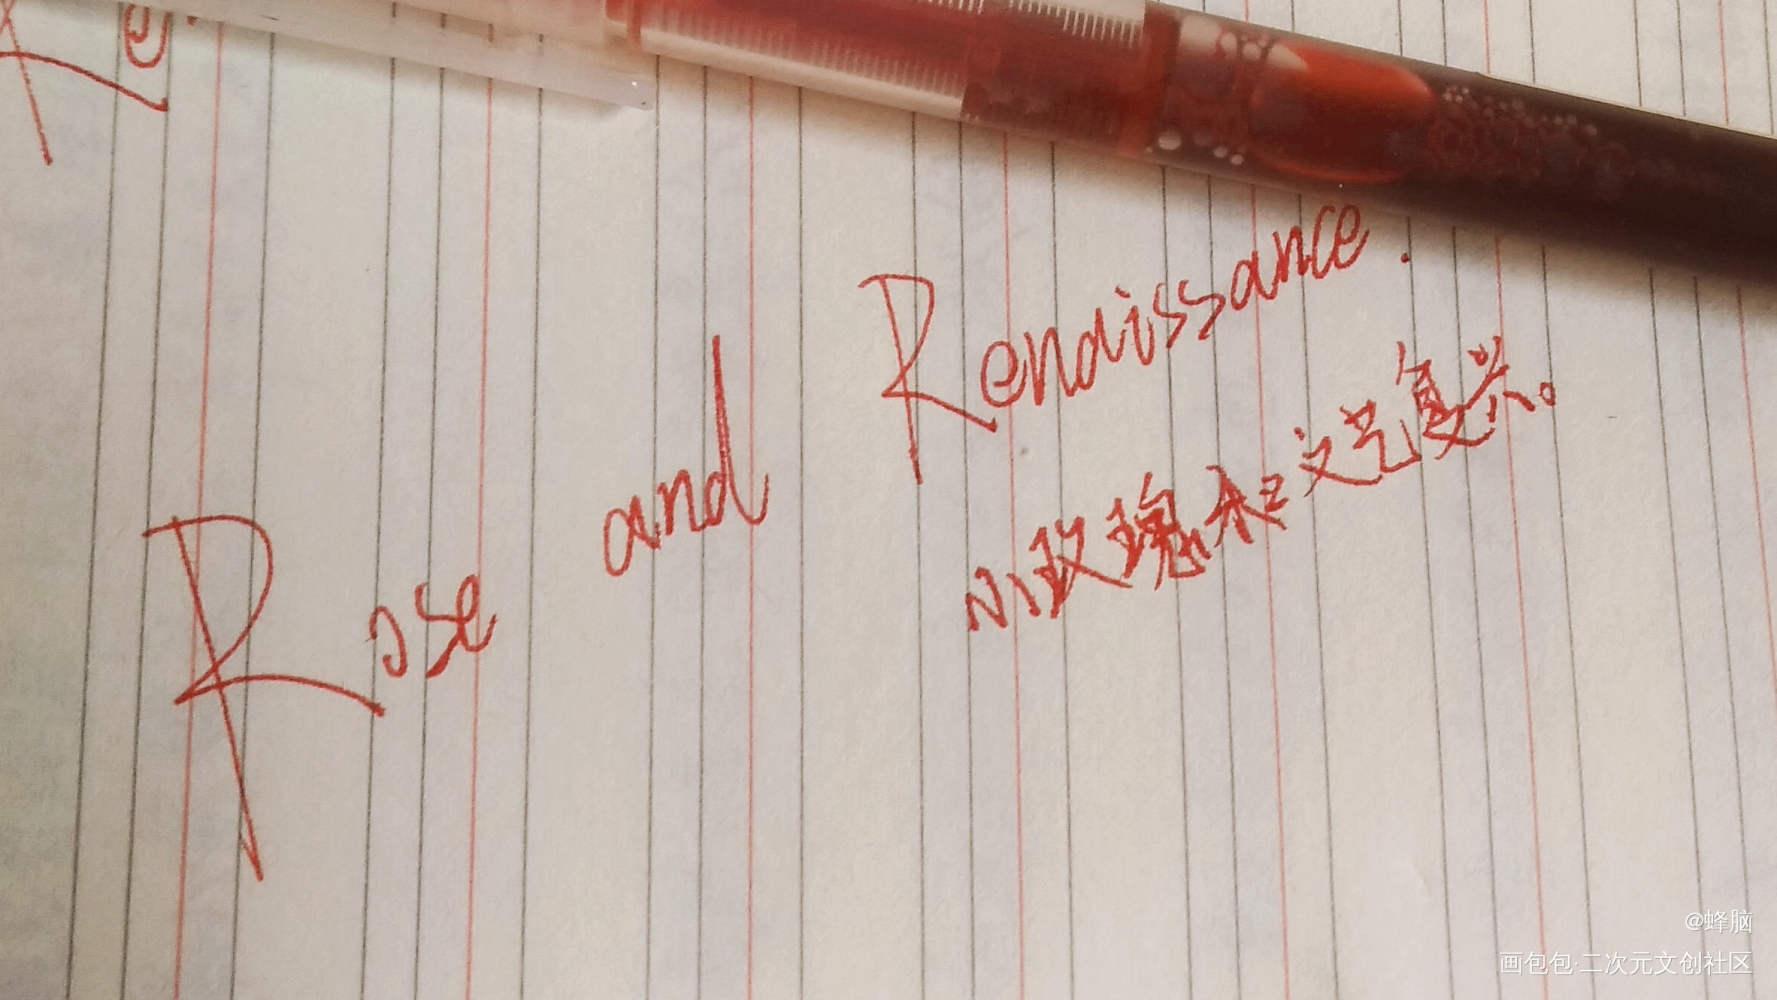 Re
Rose and Renaissance.
小玫瑰和文艺复兴。
@蜂脑
画包包·二次元文创社区